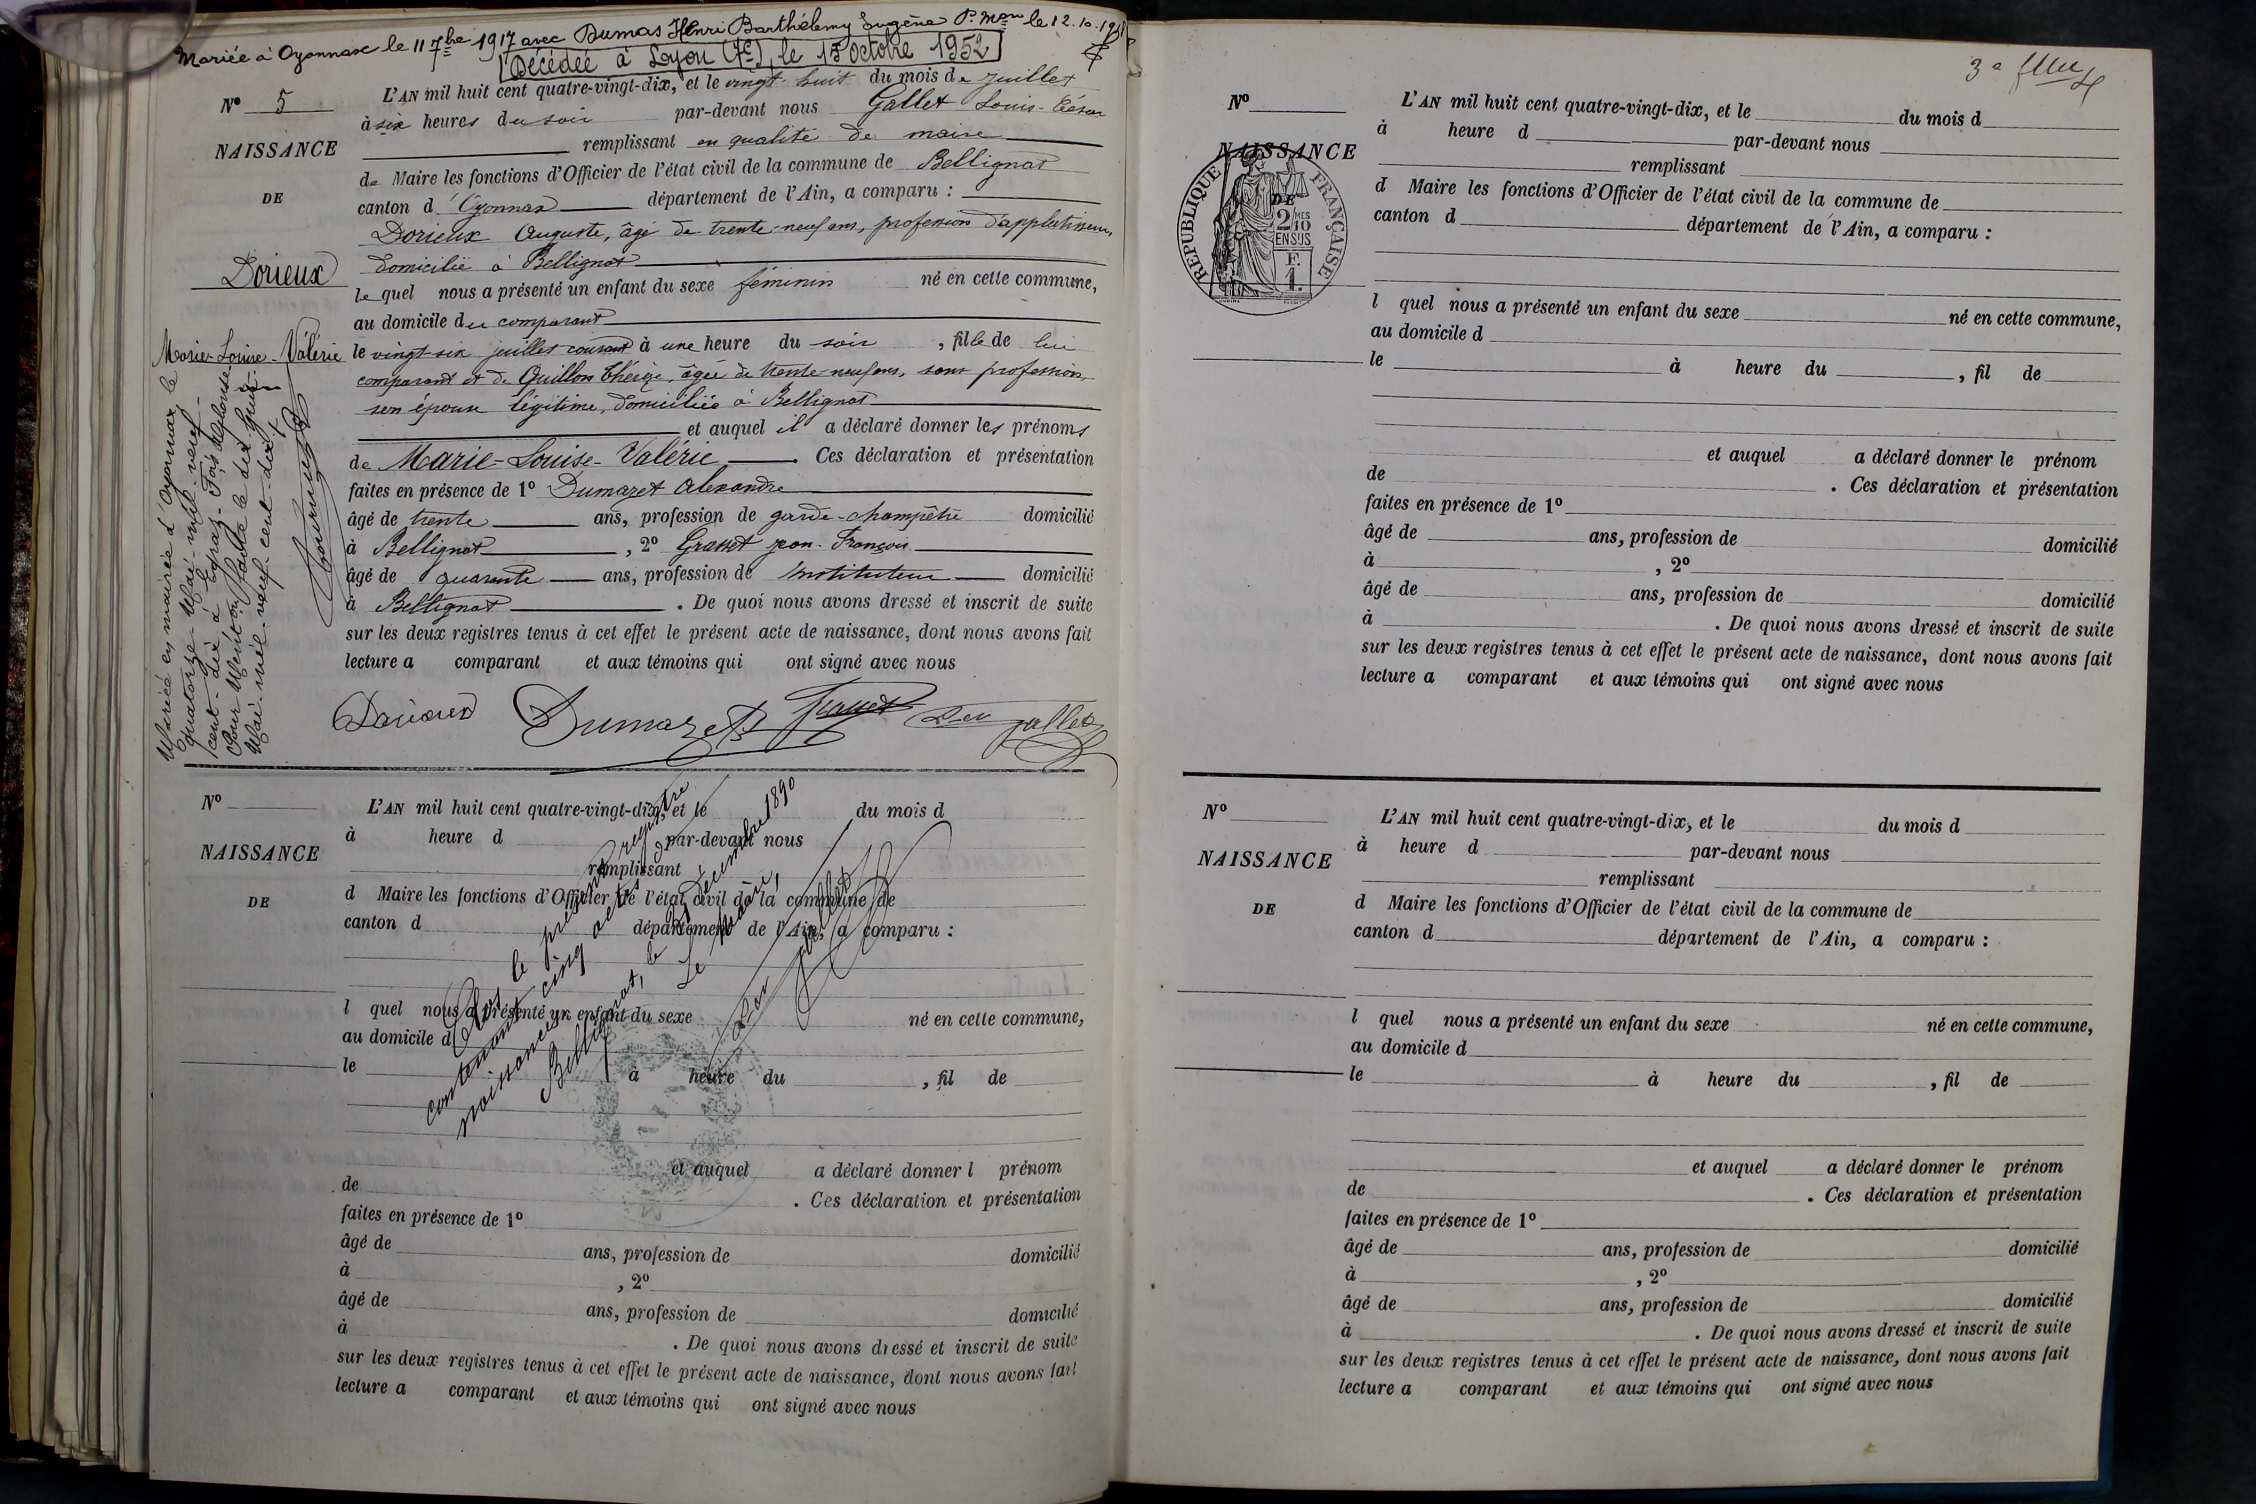 Mariée à Oyonnax le 11 7bre 1917 avec Dumas Henri Barthélemy Eugène P. Mon le 12.10.
Décédée à Lyon (7e), le 15 Octobre 1952
N° 5
NAISSANCE
DE
Dorieux
Marie-Louise-Valérie
L'AN mil huit cent quatre-vingt-dix, et le vingt-huit du mois de juillet
à six heures du soir par-devant nous Gallet Louis-César
remplissant en qualité de maire
de Maire les fonctions d'Officier de l'état civil de la commune de Bellignat
canton d'Oyonnax département de l'Ain, a comparu :
Dorieux Auguste, âgé de trente-neuf ans, profession d'applatisseur,
domicilié à Bellignat
lequel nous a présenté un enfant du sexe féminin né en cette commune,
au domicile du comparant
le vingt-six juillet courant à une heure du soir, fille de lui
comparant et de Quillon Thérèze, âgée de trente-neuf ans, sans profession,
son épouse légitime, domiciliée à Bellignat
et auquel il a déclaré donner les prénoms
de Marie-Louise-Valérie. Ces déclaration et présentation
faites en présence de 1° Dumazet Alexandre
âgé de trente ans, profession de garde-champêtre domicilié
à Bellignat, 2° Grasset Jean-François
âgé de quarante ans, profession de Instituteur domicilié
à Bellignat. De quoi nous avons dressé et inscrit de suite
sur les deux registres tenus à cet effet le présent acte de naissance, dont nous avons fait
lecture a comparant et aux témoins qui ont signé avec nous
Dorieux Dumazet Grasset Ler Gallet
Mariée en mairie d'Oyonnax le
quatorze Mai mil-neuf-
cent-dix à
Pour Mention faite le dix huit
Mai mil-neuf cent-dix
N°
NAISSANCE
DE
L'AN mil huit cent quatre-vingt-dix, et le du mois d
à heure d par-devant nous
remplissant
d Maire les fonctions d'Officier de l'état civil de la commune de
canton d département de l'Ain, a comparu :
l quel nous a présenté un enfant du sexe né en cette commune,
au domicile d
le à heure du , fil de
et auquel a déclaré donner l prénom
de . Ces déclaration et présentation
faites en présence de 1°
âgé de ans, profession de domicilié
à , 2°
âgé de ans, profession de domicilié
à . De quoi nous avons dressé et inscrit de suite
sur les deux registres tenus à cet effet le présent acte de naissance, dont nous avons fait
lecture a comparant et aux témoins qui ont signé avec nous
Clos le présent registre
contenant cinq actes de
naissances
Bellignat, le 31 décembre 1890
Le maire,
Ler Gallet
N°
NAISSANCE
DE
RÉPUBLIQUE FRANÇAISE
2/10
EN SUS
E.
1.
L'AN mil huit cent quatre-vingt-dix, et le du mois d
à heure d par-devant nous
remplissant
d Maire les fonctions d'Officier de l'état civil de la commune de
canton d département de l'Ain, a comparu :
l quel nous a présenté un enfant du sexe né en cette commune,
au domicile d
le à heure du , fil de
et auquel a déclaré donner le prénom
de . Ces déclaration et présentation
faites en présence de 1°
âgé de ans, profession de domicilié
à , 2°
âgé de ans, profession de domicilié
à . De quoi nous avons dressé et inscrit de suite
sur les deux registres tenus à cet effet le présent acte de naissance, dont nous avons fait
lecture a comparant et aux témoins qui ont signé avec nous
N°
NAISSANCE
DE
L'AN mil huit cent quatre-vingt-dix, et le du mois d
à heure d par-devant nous
remplissant
d Maire les fonctions d'Officier de l'état civil de la commune de
canton d département de l'Ain, a comparu :
l quel nous a présenté un enfant du sexe né en cette commune,
au domicile d
le à heure du , fil de
et auquel a déclaré donner le prénom
de . Ces déclaration et présentation
faites en présence de 1°
âgé de ans, profession de domicilié
à , 2°
âgé de ans, profession de domicilié
à . De quoi nous avons dressé et inscrit de suite
sur les deux registres tenus à cet effet le présent acte de naissance, dont nous avons fait
lecture a comparant et aux témoins qui ont signé avec nous